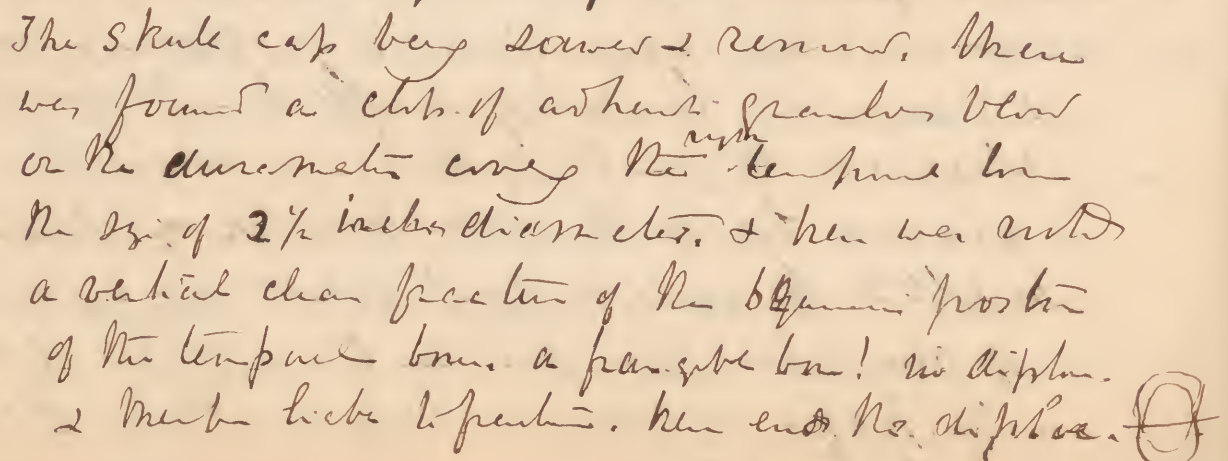 The skull cap being sawed & removed, there
was found a clot of adherent granular blood
on the duramater covering the right temporal bone
the size of 2 1/2 inches diameter. & there was noted
a vertical clean fracture of the squamous portion
of the temporal bone. a frangible bone! no diploe.
& therefore liable to fracture. here ends the diploe.